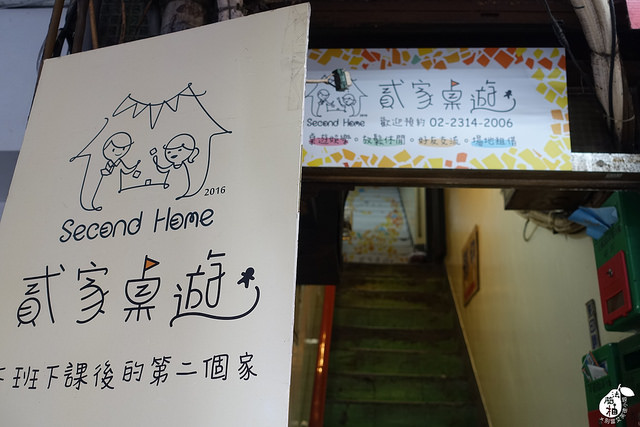 2016
Second Home
貳家桌遊
下班下課後的第二個家
貳家桌遊
Second Home 歡迎預約 02-2314-2006
桌遊娛樂。放鬆休閒。好友交流。場地租借